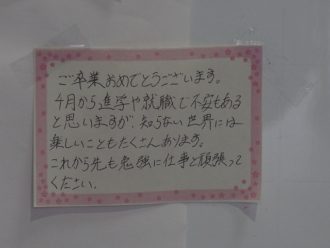 ご卒業おめでとうございます。
4月から進学や就職し不安もある
と思いますが、知らない世界には
楽しいこともたくさんあります。
これから先も勉強に仕事と頑張って
ください。